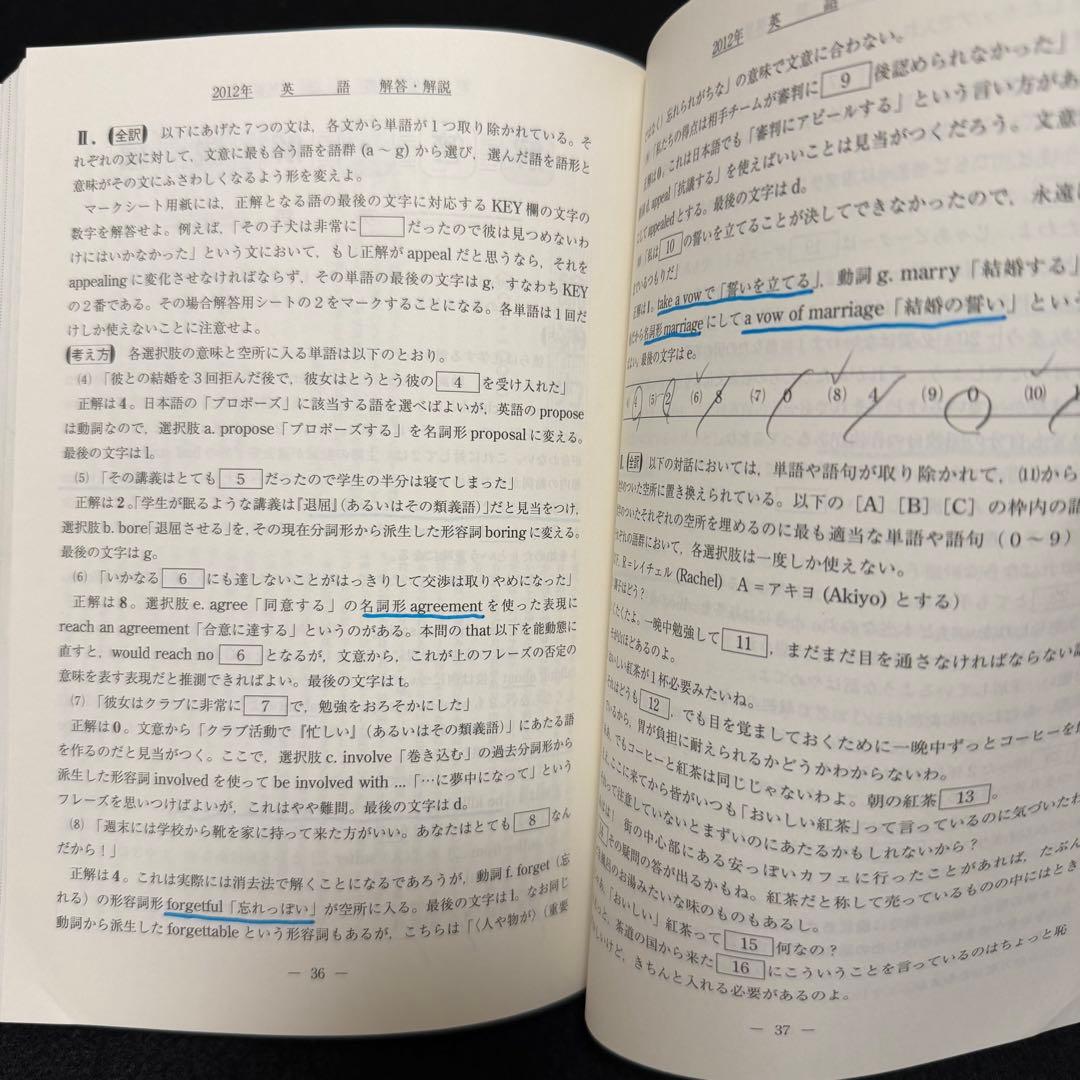 2012年　英　語　解答・解説
Ⅱ．全訳　以下にあげた7つの文は，各文から単語が1つ取り除かれている。そ
れぞれの文に対して，文意に最も合う語を語群 (a～g) から選び，選んだ語を語形と
意味がその文にふさわしくなるよう形を変えよ。
マークシート用紙には，正解となる語の最後の文字に対応する KEY 欄の文字の
数字を解答せよ。例えば，「その子犬は非常に　　だったので彼は見つめないわ
けにはいかなかった」という文において，もし正解が appeal だと思うなら，それを
appealing に変化させなければならず，その単語の最後の文字は g，すなわち KEY
の2番である。その場合解答用シートの2をマークすることになる。各単語は1回だ
けしか使えないことに注意せよ。
考え方　各選択肢の意味と空所に入る単語は以下のとおり。
(4)「彼との結婚を3回拒んだ後で，彼女はとうとう彼の 4 を受け入れた」
正解は 4。日本語の「プロポーズ」に該当する語を選べばよいが，英語の propose
は動詞なので，選択肢 a. propose「プロポーズする」を名詞形 proposal に変える。
最後の文字は l。
(5)「その講義はとても 5 だったので学生の半分は寝てしまった」
正解は 2。「学生が眠るような講義は『退屈』(あるいはその類義語)」だと見当をつけ，
選択肢 b. bore「退屈させる」を，その現在分詞形から派生した形容詞 boring に変える。
最後の文字は g。
(6)「いかなる 6 にも達しないことがはっきりして交渉は取りやめになった」
正解は 8。選択肢 e. agree「同意する」の名詞形 agreement を使った表現に
reach an agreement「合意に達する」というのがある。本問の that 以下を能動態に
直すと，would reach no 6 となるが，文意から，これが上のフレーズの否定の
意味を表す表現だと推測できればよい。最後の文字は t。
(7)「彼女はクラブに非常に 7 で，勉強をおろそかにした」
正解は 0。文意から「クラブ活動で『忙しい』(あるいはその類義語)」にあたる語
を作るのだと見当がつく。ここで，選択肢 c. involve「巻き込む」の過去分詞形から
派生した形容詞 involved を使って be involved with …「…に夢中になって」という
フレーズを思いつけばよいが，これはやや難問。最後の文字は d。
(8)「週末には学校から靴を家に持って来た方がいい。あなたはとても 8 なん
だから！」
正解は 4。これは実際には消去法で解くことになるであろうが，動詞 f. forget (忘
れる) の形容詞形 forgetful「忘れっぽい」が空所に入る。最後の文字は l。なお同じ
動詞から派生した forgettable という形容詞もあるが，こちらは「〈人や物が〉(重要
— 36 —
2012年　英　語
ではなく) 忘れられがちな」の意味で文意に合わない。
「私たちの得点は相手チームが審判に 9 後認められなかった」
正解は 0。これは日本語でも「審判にアピールする」という言い方があ
d. appeal「抗議する」を使えばいいことは見当がつくだろう。文意
して appealed とする。最後の文字は d。
「私は 10 の誓いを立てることが決してできなかったので，永遠
ているつもりだ」
正解は 1。take a vow で「誓いを立てる」，動詞 g. marry「結婚する」
だから名詞形 marriage にして a vow of marriage「結婚の誓い」という
よい。最後の文字は e。
4 (5) 2 (6) 8 (7) 0 (8) 4 (9) 0 (10)
全訳　以下の対話においては，単語や語句が取り除かれて，(11)から
のついた空所に置き換えられている。以下の [A] [B] [C] の枠内の語
のついたそれぞれの空所を埋めるのに最も適当な単語や語句 (0～9)
ぞれの語群において，各選択肢は一度しか使えない。
R＝レイチェル (Rachel)　A＝アキヨ (Akiyo) とする)
調子はどう？
くたくたよ。一晩中勉強して 11 ，まだまだ目を通さなければならない
がどのほどあるのよ。
おいしい紅茶が1杯必要みたいね。
それはどうも 12 ，でも目を覚ましておくために一晩中ずっとコーヒーを
ているから，胃が負担に耐えられるかどうかわからないわ。
でもコーヒーと紅茶は同じじゃないわよ。朝の紅茶 13 。
ここに来てから皆がいつも「おいしい紅茶」って言っているのに気づいたわ
って注意していないとまずいのにあたるかもしれないから？
街の中心部にある安っぽいカフェに行ったことがあれば，たぶん
その疑問の答が出るかもね。紅茶だと称して売っているものの中にはとき
風呂のお湯みたいな味のものもあるし。
「おいしい」紅茶って 15 何なの？
茶道の国から来た 16 にこういうことを言っているのはちょっと恥
しいけど，きちんと入れる必要があるのよ。
— 37 —